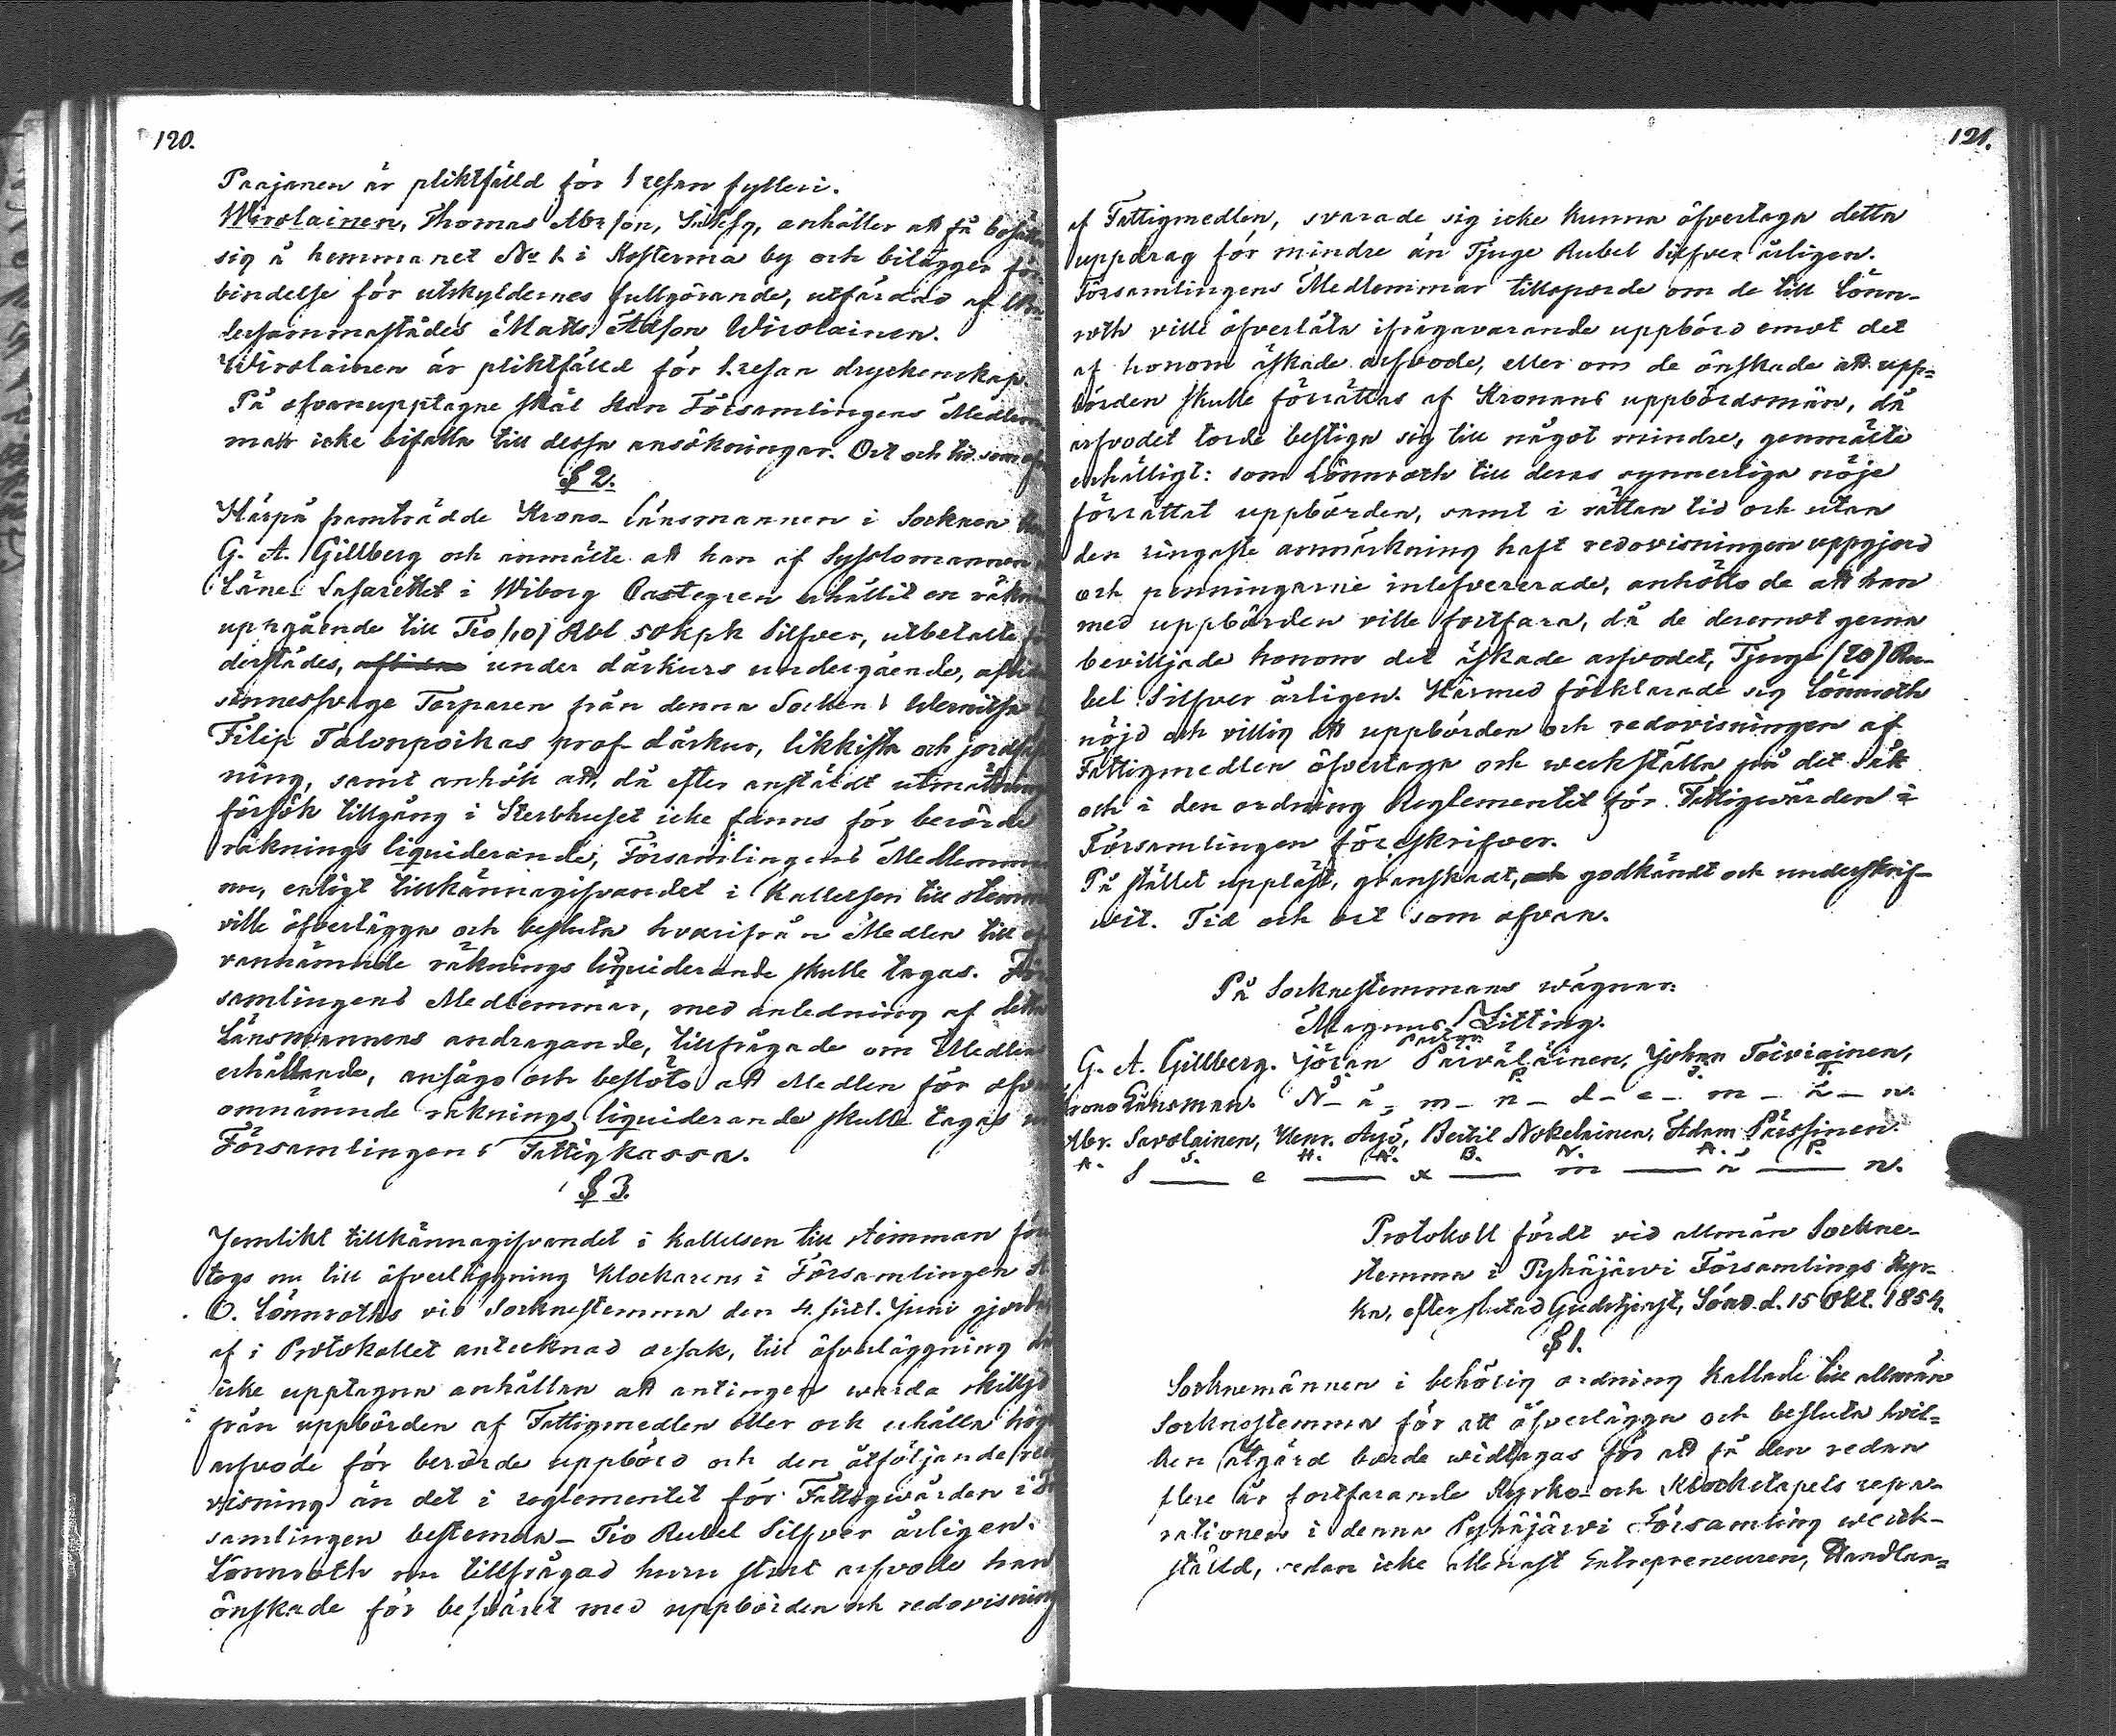 120.
Paajanen är pliktfälld för 1 resan fylleri.
Wirolainen, Thomas Abrson, anhåller att få bosätta
sig å hemmanet No 1 i Kosterma by och bilägger för-
bindelse för utskyldernes fullgörande, utfärdad af
dersammastädes Matts Adson Wirolainen.
Wirolainen är pliktfälld för 1 resan dryckenskap.
På ofvanupptagne skäl kan Församlingens Medlem
mar icke bifalla till dessa ansökningar. Ort och tid som ofvan
§ 2.
Härpå framträdde Krono-Länsmannen i Socknen
G. A. Gillberg och anmälte att han af Sysslomannen
Läne Lasarettet i Wiborg Castegren erhållit en räkning
uppgående till Tio (10) Rbl 50 kpk Silfver, utbetalte
derstädes, under dårkurs undergående,
sinnessvage Torparen från denna Socken
Filip Talonpoikas prof dårkur, likkista och jordfäst
ning, samt anhöll att, då efter anstäldt utmätnings
försök tillgång i Sterbhuset icke fanns för berörde
räknings liquiderande, Församlingens Medlemmar
nu, enligt tillkännagifvandet i Kallelsen till stemman
ville öfverlägga och besluta hvarifrån Medlen till
vannämnde räknings liquiderande skulle tagas. För
samlingens Medlemmar, med anledning af detta
Länsmannens andragande, tillfrågade om Medlens
erhållande, ansågo och beslöto att Medlen för ofvan
omnämnde räknings liquiderande skulle tagas ur
Församlingens Fattigkassa.
§ 3.
Jemlikt tillkännagifvandet i kallelsen till stemman före
togs nu till öfverläggning Klockarens i Församlingen
O. Lönnroths vid Sockenstemma den 4. sistl. Juni gjorde
af i Protokollet antecknad orsak, till öfverläggning då
icke upptagna anhållan att antingen warda skilljd
från uppbörden af Fattigmedlen eller ock erhålla högre
arfvode för berörde uppbörd och den åtföljande redo
visning än det i reglementet för Fattigwården i För
samlingen bestemda - Tio Rubel Silfver årligen.
Lönnroth nu tillfrågad huru stort arfvode han
önskade för besväret med uppbörden och redovisning
121.
af Fattigmedlen, svarade sig icke kunna öfvertaga detta
uppdrag för mindre än Tjuge Rubel Silfver årligen.
Församlingens Medlemmar tillsporde om de till Lönn-
roth ville öfverlåta ifrågavarande uppbörd emot det
af honom äskade arfvode, eller om de önskade att upp=
börden skulle förrättas af Kronans uppbördsmän, då
arfvodet torde bestiga sig till något mindre, genmälte
enhälligt: som Lönnroth till deras synnerliga nöje
förrättat uppbörden, samt i rättan tid och utan
den ringaste anmärkning haft redovisningen uppgjord
och penningarne inlefvererade, anhöllo de att han
med uppbörden ville fortfara, då de deremot gerna
bevilljade honom det äskade arfvodet, Tjuge (20) Ru-
bel Silfver årligen. Härmed förklarade sig Lönnroth
nöjd och villig att uppbörden och redovisningen af
Fattigmedlen öfvertaga och werkställa på det sätt
och i den ordning Reglementet för Fattigwården i
Församlingen föreskrifver.
På stället uppläst, granskadt, och godkändt och underskrif-
wit. Tid och ort som ofvan.
På Socknestemmans wägnar:
Magnus Zitting.
Pastor
G. A. Gillberg. Jöran Päiväläinen, Johan Toiviainen,
Krono Länsman. N - ä - m - n - d - e - m - ä - n.
Abr. Savolainen, Henr. Äyö, Bertil Nokelainen, Adam Pässinen.
A. S. H. Ä. B. N. A. P.
S — e — x — m — ä — n.
Protokoll fördt vid allmän Sockne-
stemma i Pyhäjärwi Församlings Kyr-
ka, efter slutad Gudstjenst, Sönd. d. 15 Okt. 1854.
§ 1.
Socknemännen i behörig ordning kallade till allmän
Socknestemma för att öfverlägga och besluta hvil=
ken åtgärd borde widtagas för att få den redan
flere år fortfarande Kyrko- och Klockstapels repa-
rationen i denna Pyhäjärwi Församling werk-
ställd, sedan icke allenast Entrepreneuren, Handlan=